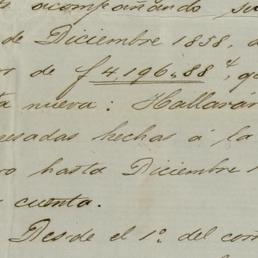 acompañando su
de Diciembre 1858, a
de ƒ 4,196,,88 4, qu
ta nueva: Hallarán
esadas hechas á la
ro hasta Diciembre 1
cuenta.
Desde el 1º. del cor